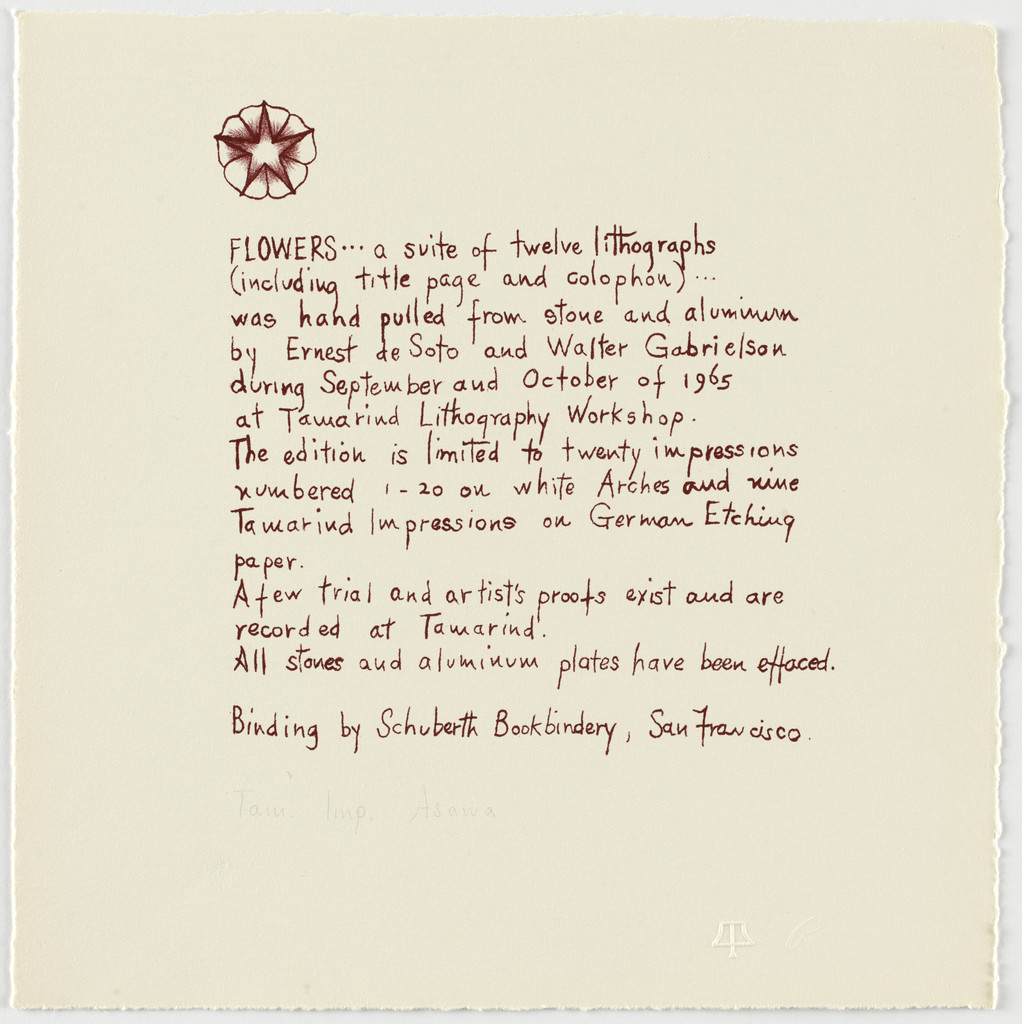 FLOWERS... a suite of twelve lithographs
(including title page and colophon) ...
was hand pulled from stone and aluminum
by Ernest de Soto and Walter Gabrielson
during September and October of 1965
at Tamarind Lithography Workshop.
The edition is limited to twenty impressions
numbered 1-20 on white Arches and nine
Tamarind Impressions on German Etching
paper.
A few trial and artist's proofs exist and are
recorded at Tamarind.
All stones and aluminum plates have been effaced.
Binding by Schuberth Bookbindery, San Francisco.
Tam. Imp. Asawa